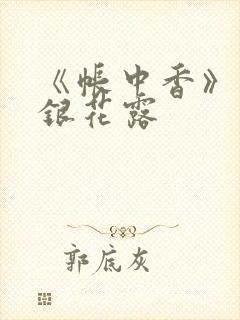 《帐中香》
银花露
郭底灰